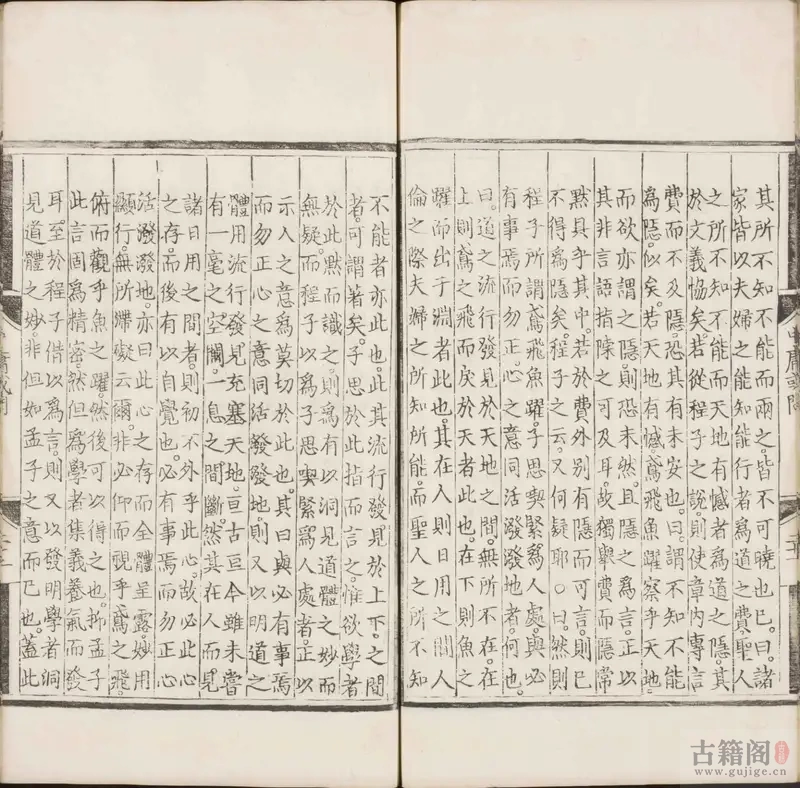 其所不知不能而兩之皆不可曉也已曰諸
家皆以夫婦之能知能行者爲道之費聖人
之所不知不能而天地有憾者爲道之隱其
於文義恊矣若從程子之說則使章內專言
費而不及隱恐其有未安也曰謂不知不能
爲隱似矣若天地有憾鳶飛魚躍察乎天地
而欲亦謂之隱則恐未然且隱之爲言正以
其非言語指陳之可及耳故獨舉費而隱常
默具乎其中若於費外別有隱而可言則已
不得爲隱矣程子之云又何疑耶○曰然則
程子所謂鳶飛魚躍子思喫緊爲人處與必
有事焉而勿正心之意同活潑潑地者何也
曰道之流行發見於天地之間無所不在在
上則鳶之飛而戾於天者此也在下則魚之
躍而出于淵者此也其在人則日用之間人
倫之際夫婦之所知所能而聖人之所不知
不能者亦此也此其流行發見於上下之間
者可謂著矣子思於此指而言之惟欲學者
於此默而識之則爲有以洞見道體之妙而
無疑而程子以爲子思喫緊爲人處者正以
示人之意爲莫切於此也其曰與必有事焉
而勿正心之意同活潑潑地則又以明道之
體用流行發見充塞天地亘古亘今雖未嘗
有一毫之空闕一息之間斷然其在人而見
諸日用之間者則初不外乎此心故必此心
之存而後有以自覺也必有事焉而勿正心
活潑潑地亦曰此心之存而全體呈露妙用
顯行無所滯礙云爾非必仰而視乎鳶之飛
俯而觀乎魚之躍然後可以得之也抑孟子
此言固爲精密然但爲學者集義養氣而發
耳至於程子借以爲言則又以發明學者洞
見道體之妙非但如孟子之意而已也蓋此
古籍阁
www.gujige.cn